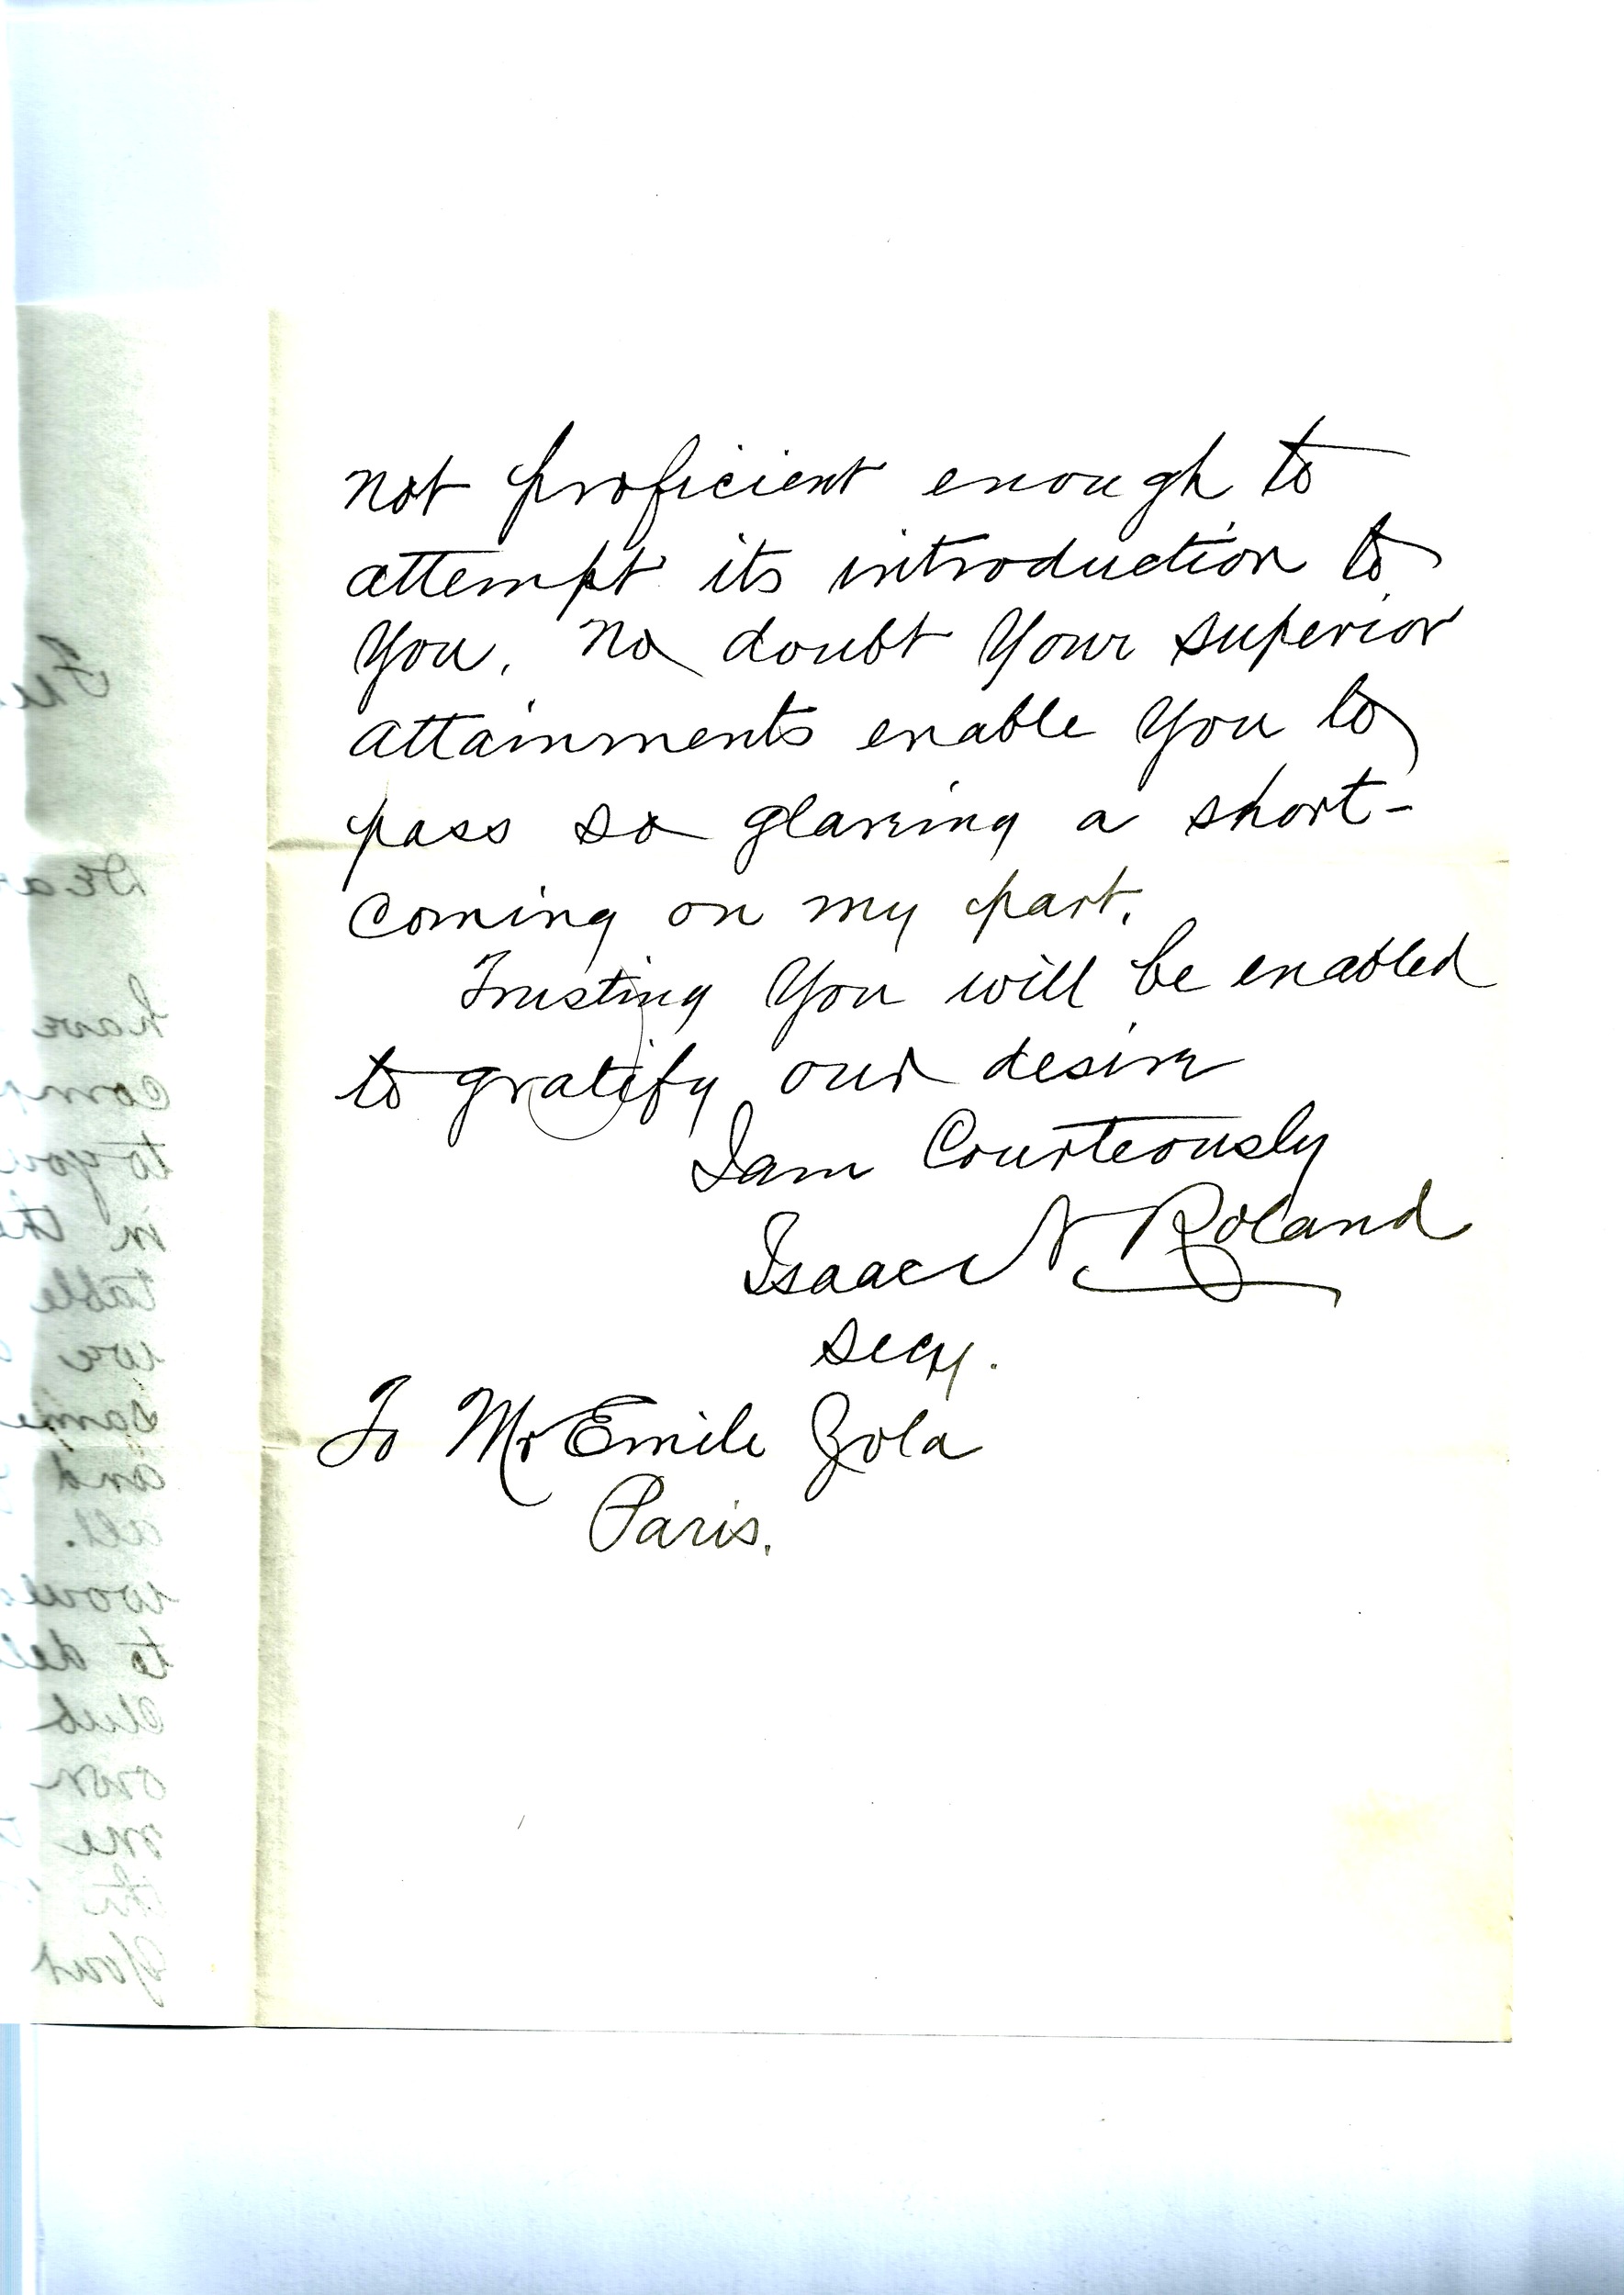 not proficient enough to
attempt its introduction to
You. No doubt Your superior
attainments enable You to
pass so glaring a short-
coming on my part.
Trusting You will be enabled
to gratify our desire
I am Courteously
Isaac N. Roland
Secy.
To Mr Emile Zola
Paris.
Dea
have
com
to you
in the
table
we
same
and
all.
would
to del
Club
own
me
the
Your